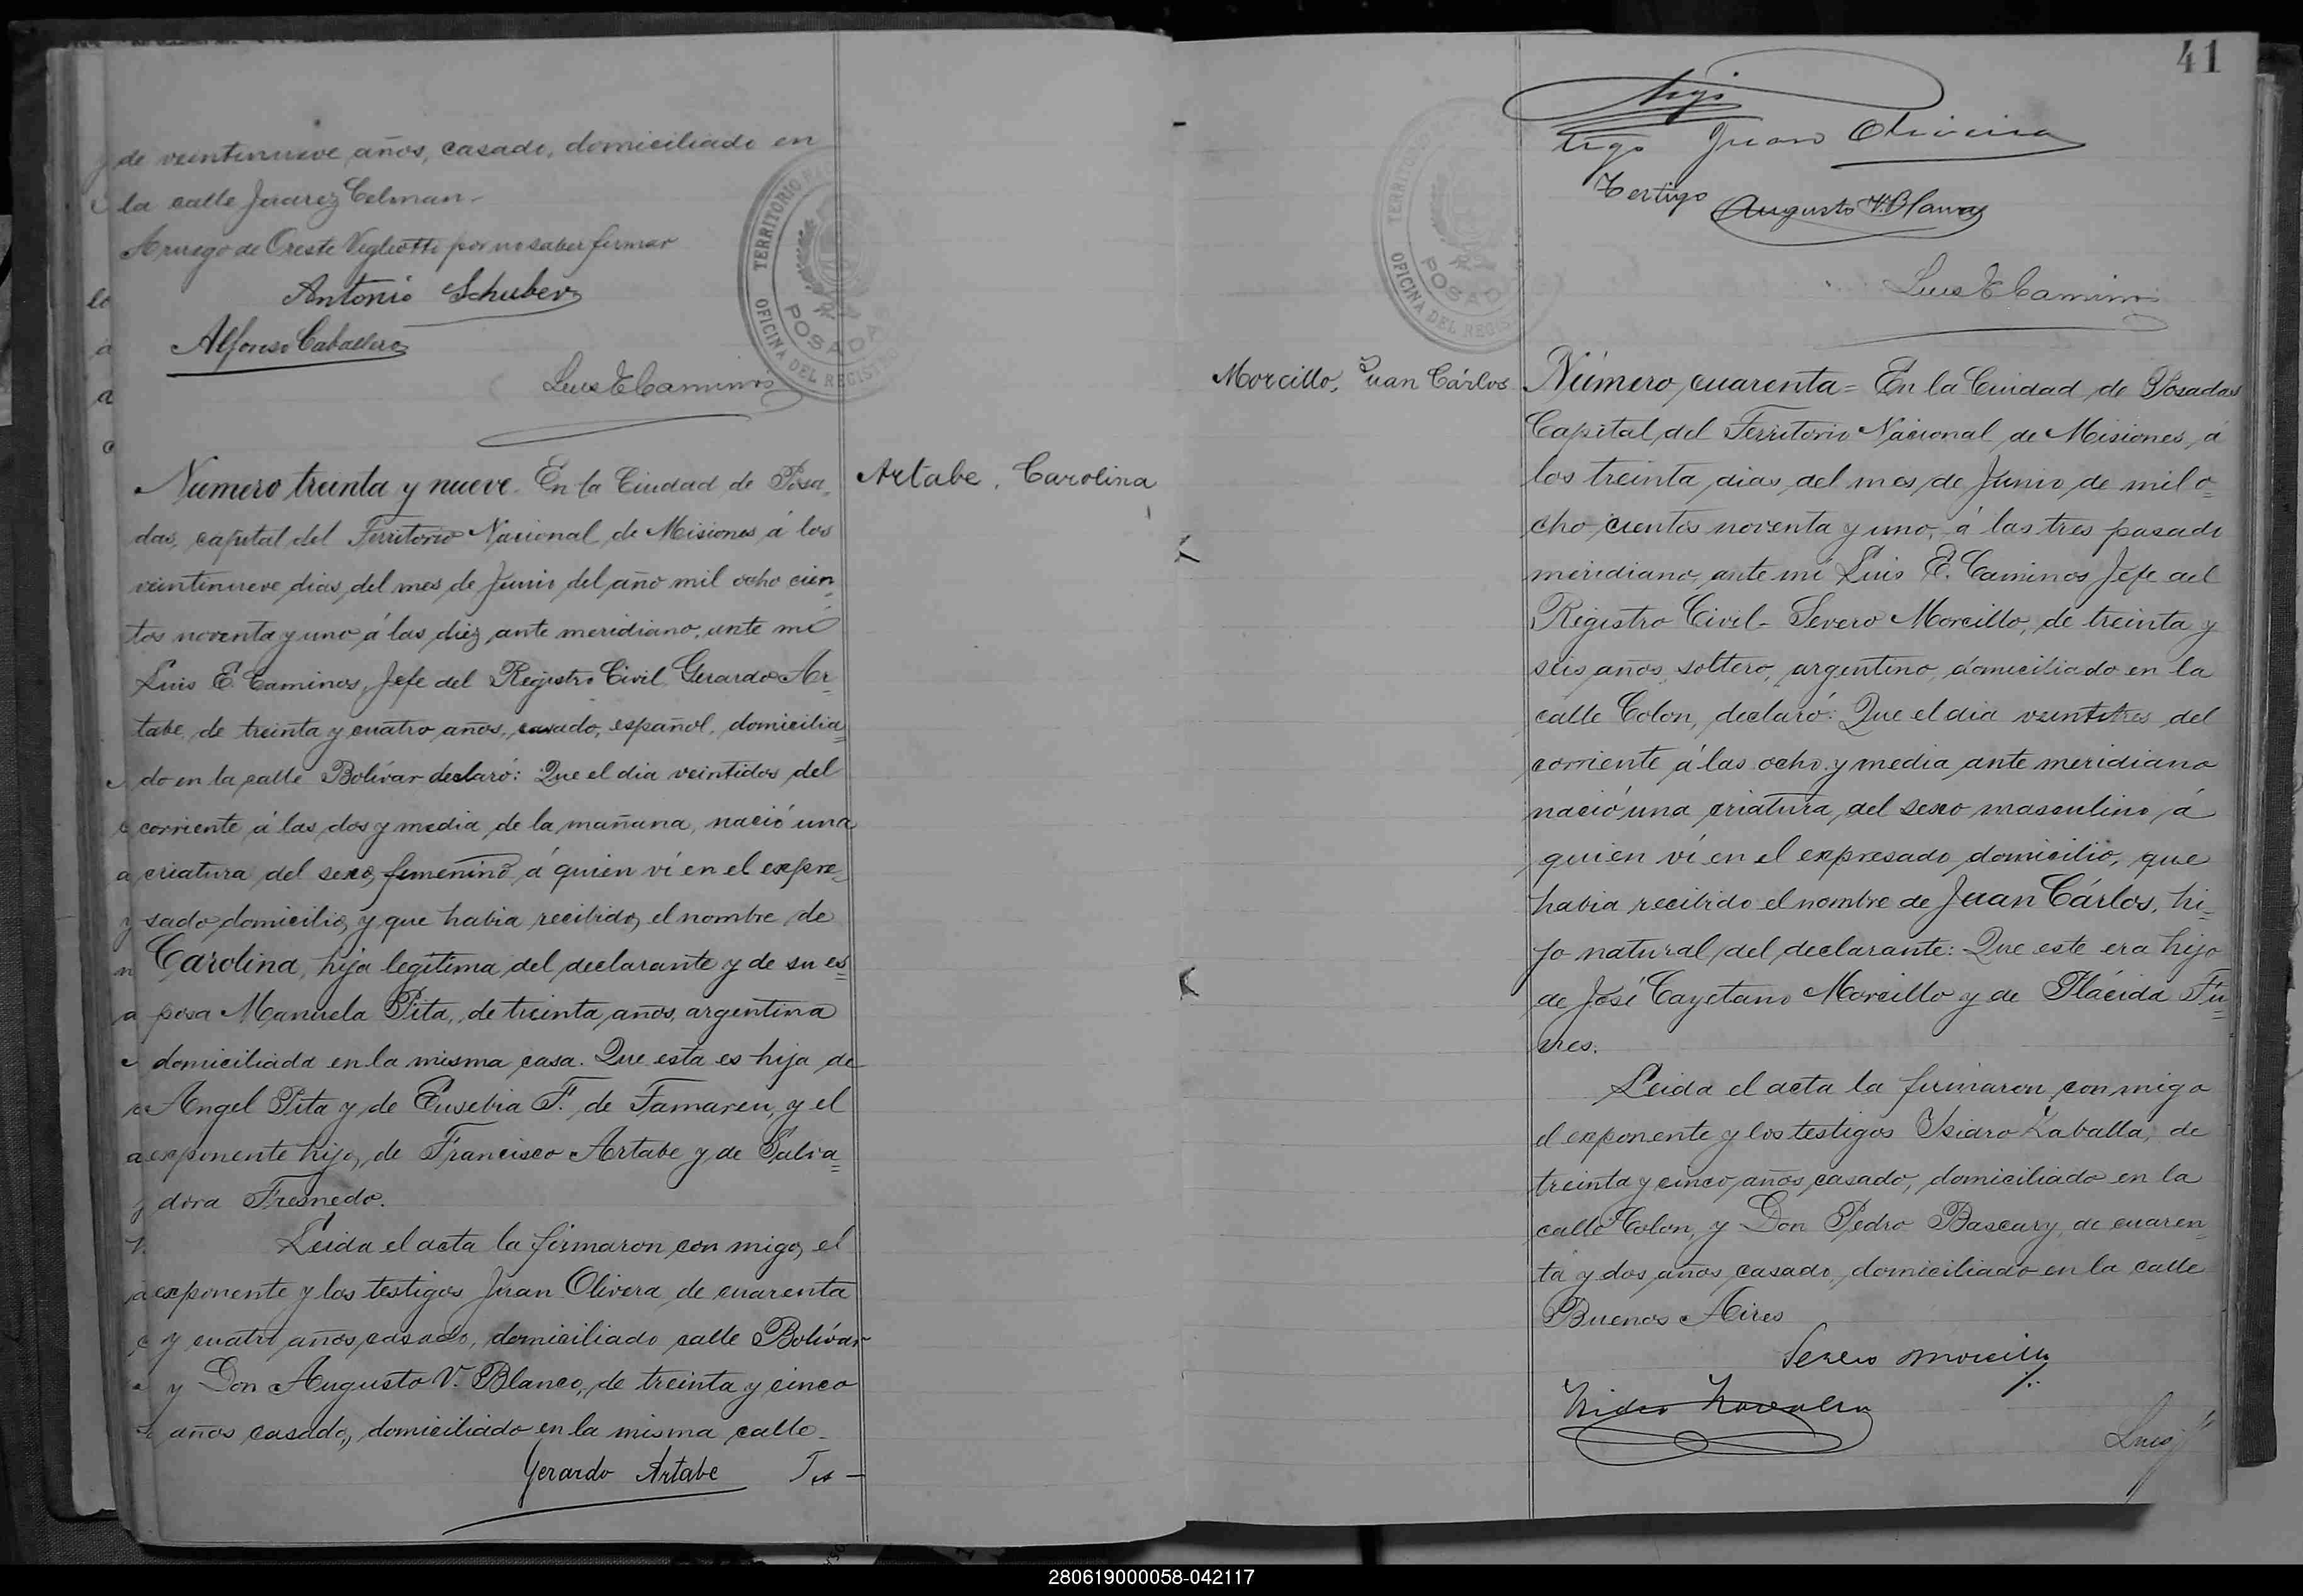 de veintinueve años, casado, domiciliado en
la calle Juarez Celman.
A ruego de Oreste Vigliotti por no saber firmar
Antonio Schuber
Alfonso Caballero
Luis E Caminos
TERRITORIO
OFICINA DEL REGISTRO
POSADAS
Número treinta y nueve. En la Ciudad de Posa-
das, capital del Territorio Nacional de Misiones á los
veintinueve dias del mes de Junio del año mil ocho cien-
tos noventa y uno á las diez ante meridiano, ante mí
Luis E. Caminos, Jefe del Registro Civil, Gerardo Ar-
tabe, de treinta y cuatro años, casado, español, domicilia-
do en la calle Bolívar declaró: Que el dia veintidos del
corriente á las dos y media de la mañana, nació una
criatura del sexo femenino á quien ví en el expre-
sado domicilio, y que habia recibido el nombre de
Carolina, hija legítima del declarante y de su es-
posa Manuela Pita, de treinta años, argentina
domiciliada en la misma casa. Que esta es hija de
Angel Pita y de Eusebia F. de Tamareu, y el
exponente hijo, de Francisco Artabe y de Salva-
dora Fresnedo.
Leida el acta la firmaron con migo, el
exponente y los testigos Juan Olivera de cuarenta
y cuatro años, casado, domiciliado calle Bolívar
y Don Augusto V. Blanco, de treinta y cinco
años casado, domiciliado en la misma calle.
Gerardo Artabe Tes-
Artabe, Carolina
41
tigo
tigo Juan Oliveira
Testigo Augusto V. Blanco
Luis E Caminos
TERRITORIO
OFICINA DEL REGISTRO
POSADAS
Morcillo, Juan Cárlos
Número, cuarenta = En la Ciudad de Posadas
Capital del Territorio Nacional de Misiones, á
los treinta dias del mes de Junio de mil o-
cho cientos noventa y uno, á las tres pasado
meridiano, ante mí Luis E. Caminos Jefe del
Registro Civil- Severo Morcillo, de treinta y
seis años, soltero, argentino, domiciliado en la
calle Colon, declaró: Que el dia veintitres del
corriente á las ocho y media ante meridiano
nació una criatura del sexo masculino á
quien ví en el expresado domicilio, que
habia recibido el nombre de Juan Cárlos, hi-
jo natural del declarante: Que este era hijo
de José Cayetano Morcillo y de Plácida Fu-
nes.
Leida el acta la firmaron con migo
el exponente y los testigos Isidro Zaballa, de
treinta y cinco años, casado, domiciliado en la
calle Colon, y Don Pedro Bascary, de cuaren-
ta y dos años, casado, domiciliado en la calle
Buenos Aires
Severo Morcillo
Isidro Zavalla
Luis
280619000058-042117